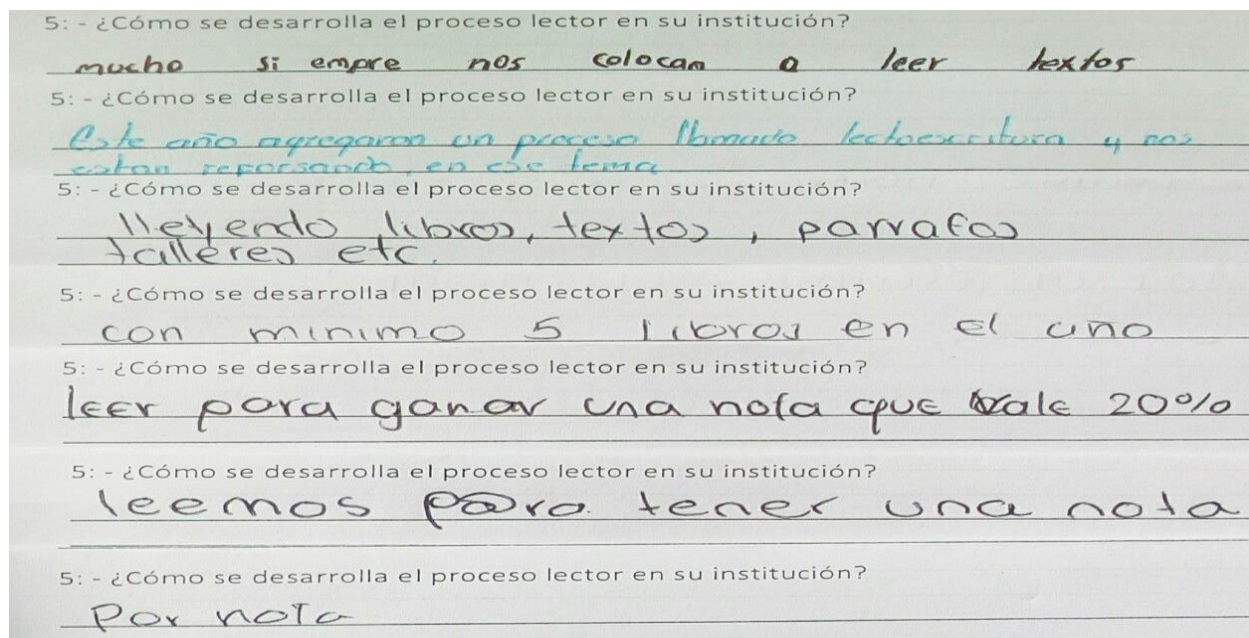 5: - ¿Cómo se desarrolla el proceso lector en su institución?
mucho si empre nos colocan a leer textos
5: - ¿Cómo se desarrolla el proceso lector en su institución?
Este año agregaron un proceso llamado lectoescritura y nos
estan reforsando, en ese tema
5: - ¿Cómo se desarrolla el proceso lector en su institución?
lleyendo libros, textos, parrafos
talleres etc.
5: - ¿Cómo se desarrolla el proceso lector en su institución?
con minimo 5 libros en el año
5: - ¿Cómo se desarrolla el proceso lector en su institución?
leer para ganar una nota que vale 20%
5: - ¿Cómo se desarrolla el proceso lector en su institución?
leemos para tener una nota
5: - ¿Cómo se desarrolla el proceso lector en su institución?
Por nota